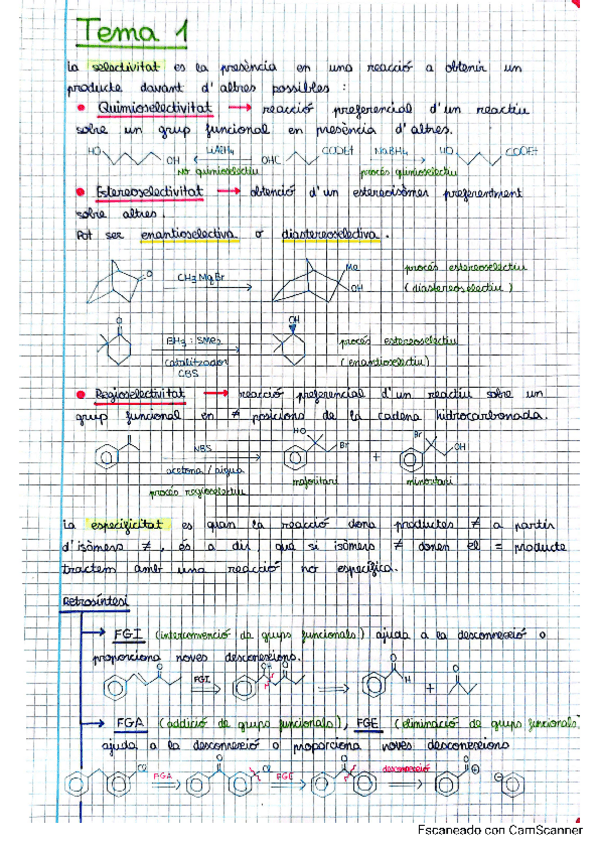 Tema 1
La selectivitat es la presència en una reacció a obtenir un
producte davant d'altres possibles :
• Quimioselectivitat → reacció preferencial d'un reactiu
sobre un grup funcional en presència d'altres.
HO OH LiAlH4 OHC COOEt NaBH4 HO COOEt
No quimioselectiu procés quimioselectiu
• Estereoselectivitat → obtenció d'un estereoisòmer preferentment
sobre altres.
Pot ser enantioselectiva o diastereoselectiva.
O CH3MgBr Me OH procés estereoselectiu
(diastereoselectiu)
O BH3 : SMe2 OH procés estereoselectiu
catalitzador (enantioselectiu)
CBS
• Regioselectivitat → reacció preferencial d'un reactiu sobre un
grup funcional en ≠ posicions de la cadena hidrocarbonada.
NBS HO Br + Br OH
acetona / aigua majoritari minoritari
procés regioselectiu
La especificitat es quan la reacció dona productes ≠ a partir
d'isòmers ≠, és a dir, que si isòmers ≠ donen el = producte
tractem amb una reacció no específica.
Retrosíntesi
→ FGI (interconvenció de grups funcionals) ajuda a la desconnexió o
proporciona noves desconexions.
O FGI OH O O H + O
→ FGA (addició de grups funcionals), FGE (eliminació de grups funcionals)
ajuda a la desconnexió o proporciona noves desconexions
Cl FGA O Cl FGE O desconnexió O ⊕ ⊖
Escaneado con CamScanner